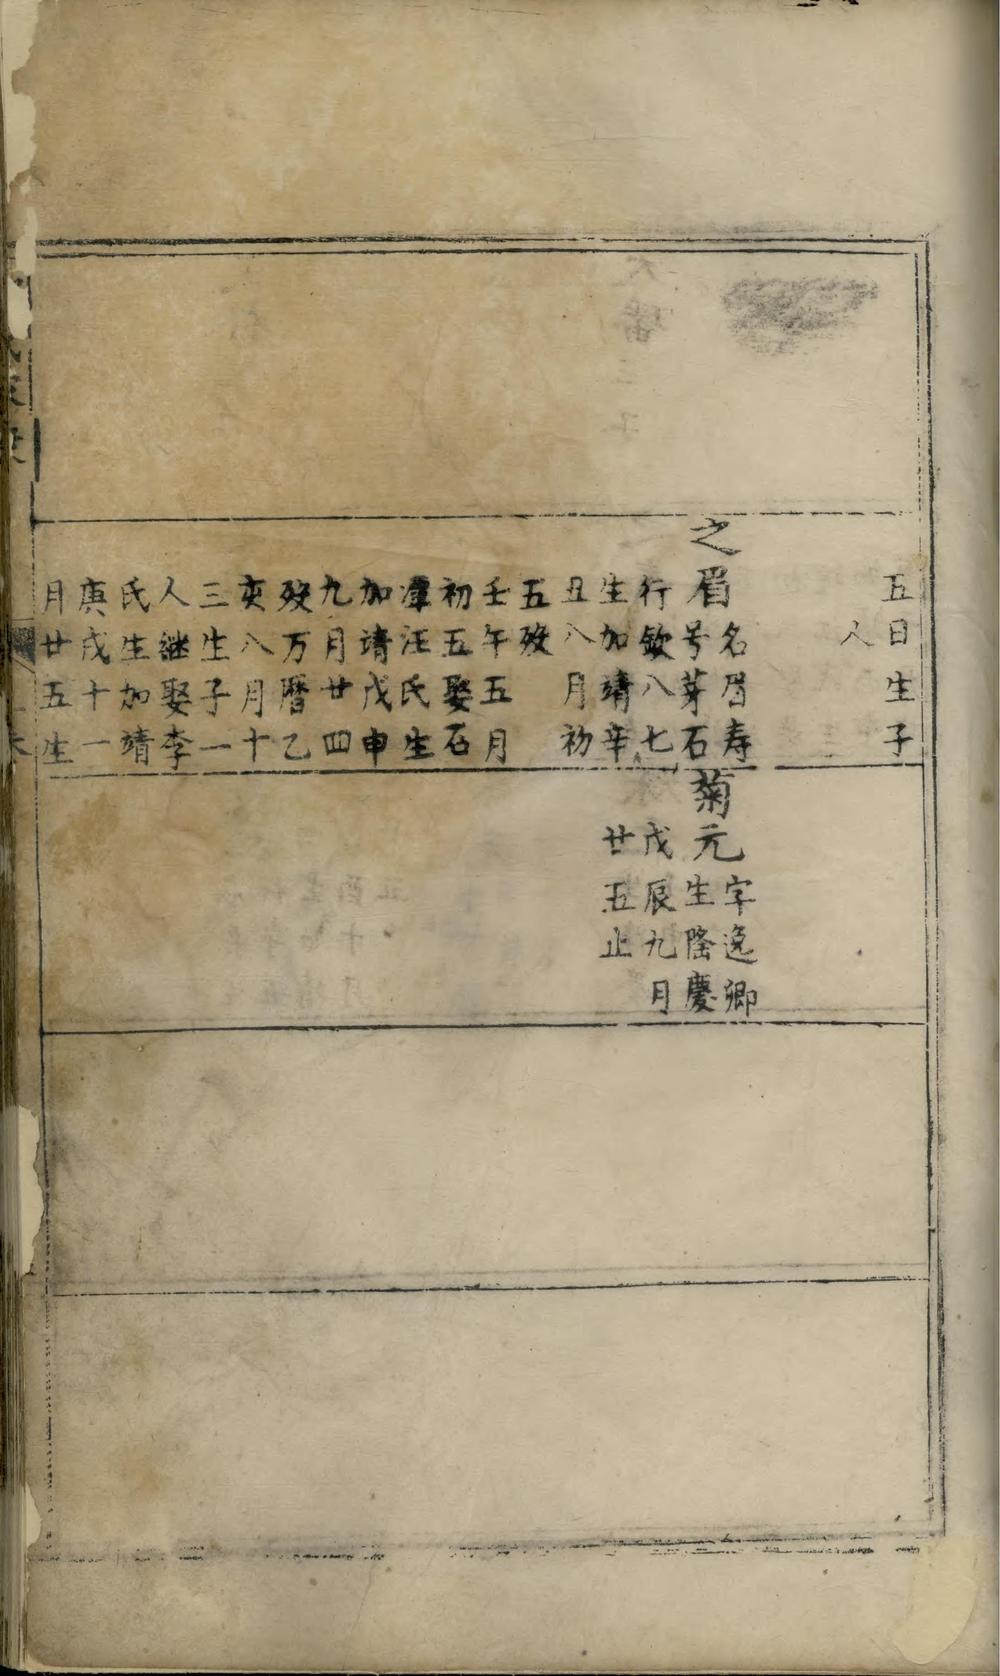 五日生子
人
之眉
名眉寿
号茅石
行欽八七
生加靖辛
丑八月初
五歿
壬午五月
初五娶石
潭汪氏生
加靖戊申
九月廿四
歿万曆乙
亥八月十
三生子一
人継娶李
氏生加靖
庚戌十一
月廿五生
菊元
字逸卿
生隆慶
戊辰九月
廿五止